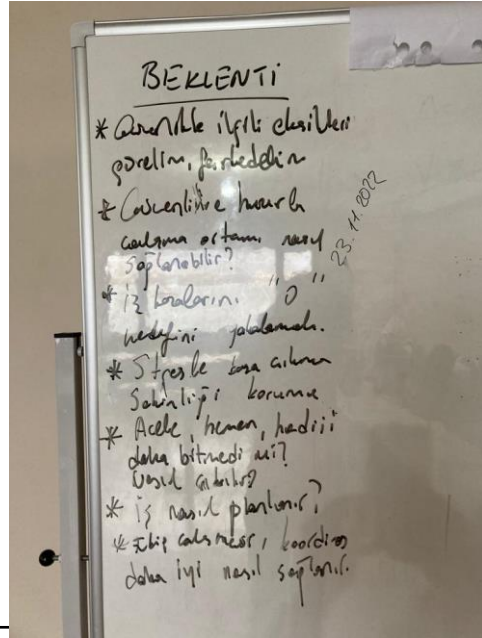 BEKLENTİ
* Güvenlikle ilgili eksikleri
görelim, farkedelim
* Güvenli ve huzurlu
çalışma ortamı nasıl
sağlanabilir?
23.11.2022
* İş kazalarını "0"
hedefini yakalamak.
* Stresle başa çıkma
Sakinliği koruma
* Acele, hemen, hadiii
daha bitmedi mi?
nasıl
* İş nasıl planlanır?
* Ekip çalışması,
daha iyi nasıl sağlanır.